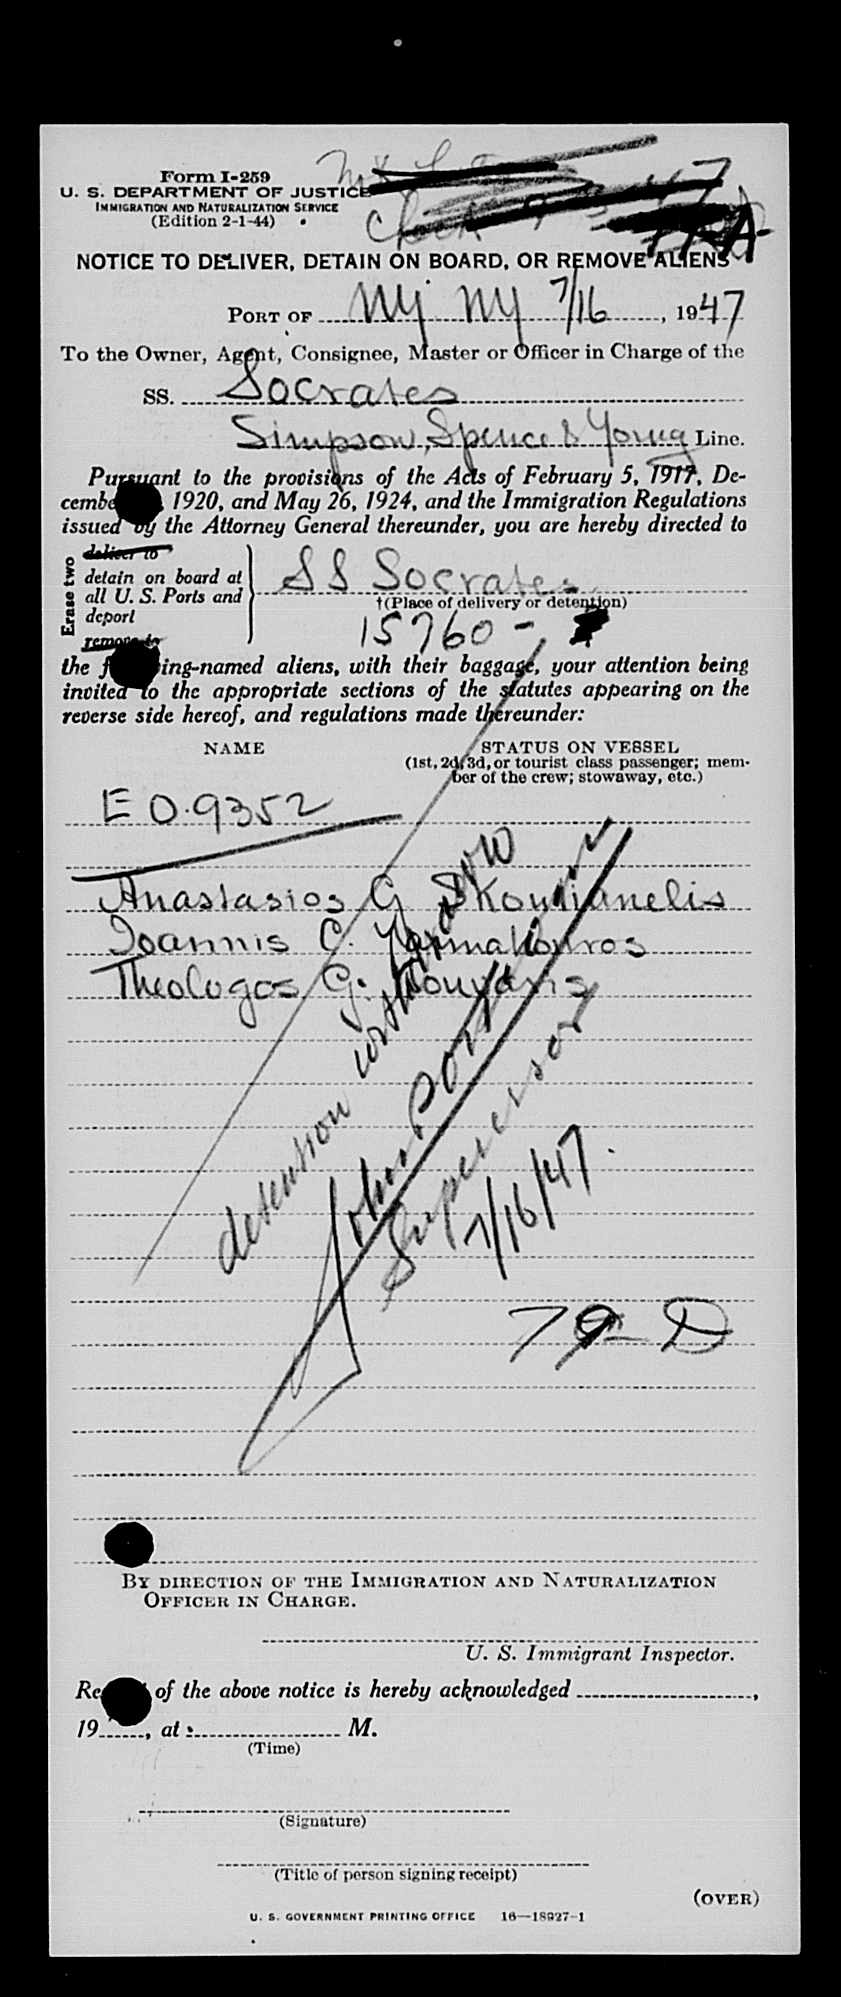 Form I-259
U. S. DEPARTMENT OF JUSTICE
IMMIGRATION AND NATURALIZATION SERVICE
(Edition 2-1-44)
NOTICE TO DELIVER, DETAIN ON BOARD, OR REMOVE ALIENS
PORT OF Ny. Ny 7/16, 1947
To the Owner, Agent, Consignee, Master or Officer in Charge of the
SS. Socrates
Simpson, Spence & Young Line.
Pursuant to the provisions of the Acts of February 5, 1917, De-
1920, and May 26, 1924, and the Immigration Regulations
issued by the Attorney General thereunder, you are hereby directed to
Erase two
deliver to
detain on board at
all U. S. Ports and
deport
remove to
SS Socrates
†(Place of delivery or detention)
15760-
the ing-named aliens, with their baggage, your attention being
invited to the appropriate sections of the statutes appearing on the
reverse side hereof, and regulations made thereunder:
NAME
STATUS ON VESSEL
(1st, 2d, 3d, or tourist class passenger; mem-
ber of the crew; stowaway, etc.)
E O.9352
Anastasios G.
Ioannis C.
Theologos G.
detention
John
Supervisor
7/16/47.
79-D
BY DIRECTION OF THE IMMIGRATION AND NATURALIZATION
OFFICER IN CHARGE.
U. S. Immigrant Inspector.
of the above notice is hereby acknowledged ,
19 , at M.
(Time)
(Signature)
(Title of person signing receipt)
(OVER)
U. S. GOVERNMENT PRINTING OFFICE 16—18927-1